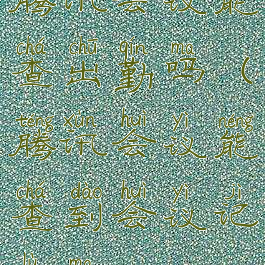 腾讯会议能
chá chū qín ma
查出勤吗,(
téng xùn huì yì néng
腾讯会议能
chá dào huì yì jì
查到会议记
lù ma